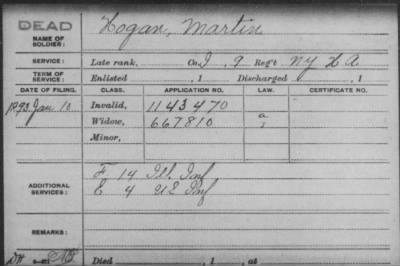 DEAD
NAME OF SOLDIER: Hogan, Martin
SERVICE: Late rank, Co. I, 9 Reg't NY H A
TERM OF SERVICE: Enlisted , 1 Discharged , 1
DATE OF FILING. CLASS. APPLICATION NO. LAW. CERTIFICATE NO.
1893 Jan 10 Invalid, 1143470
Widow, 667810
Minor,
ADDITIONAL SERVICES: F 14 Ill. Inf
E 4 US Inf
REMARKS:
Died , 1 , at